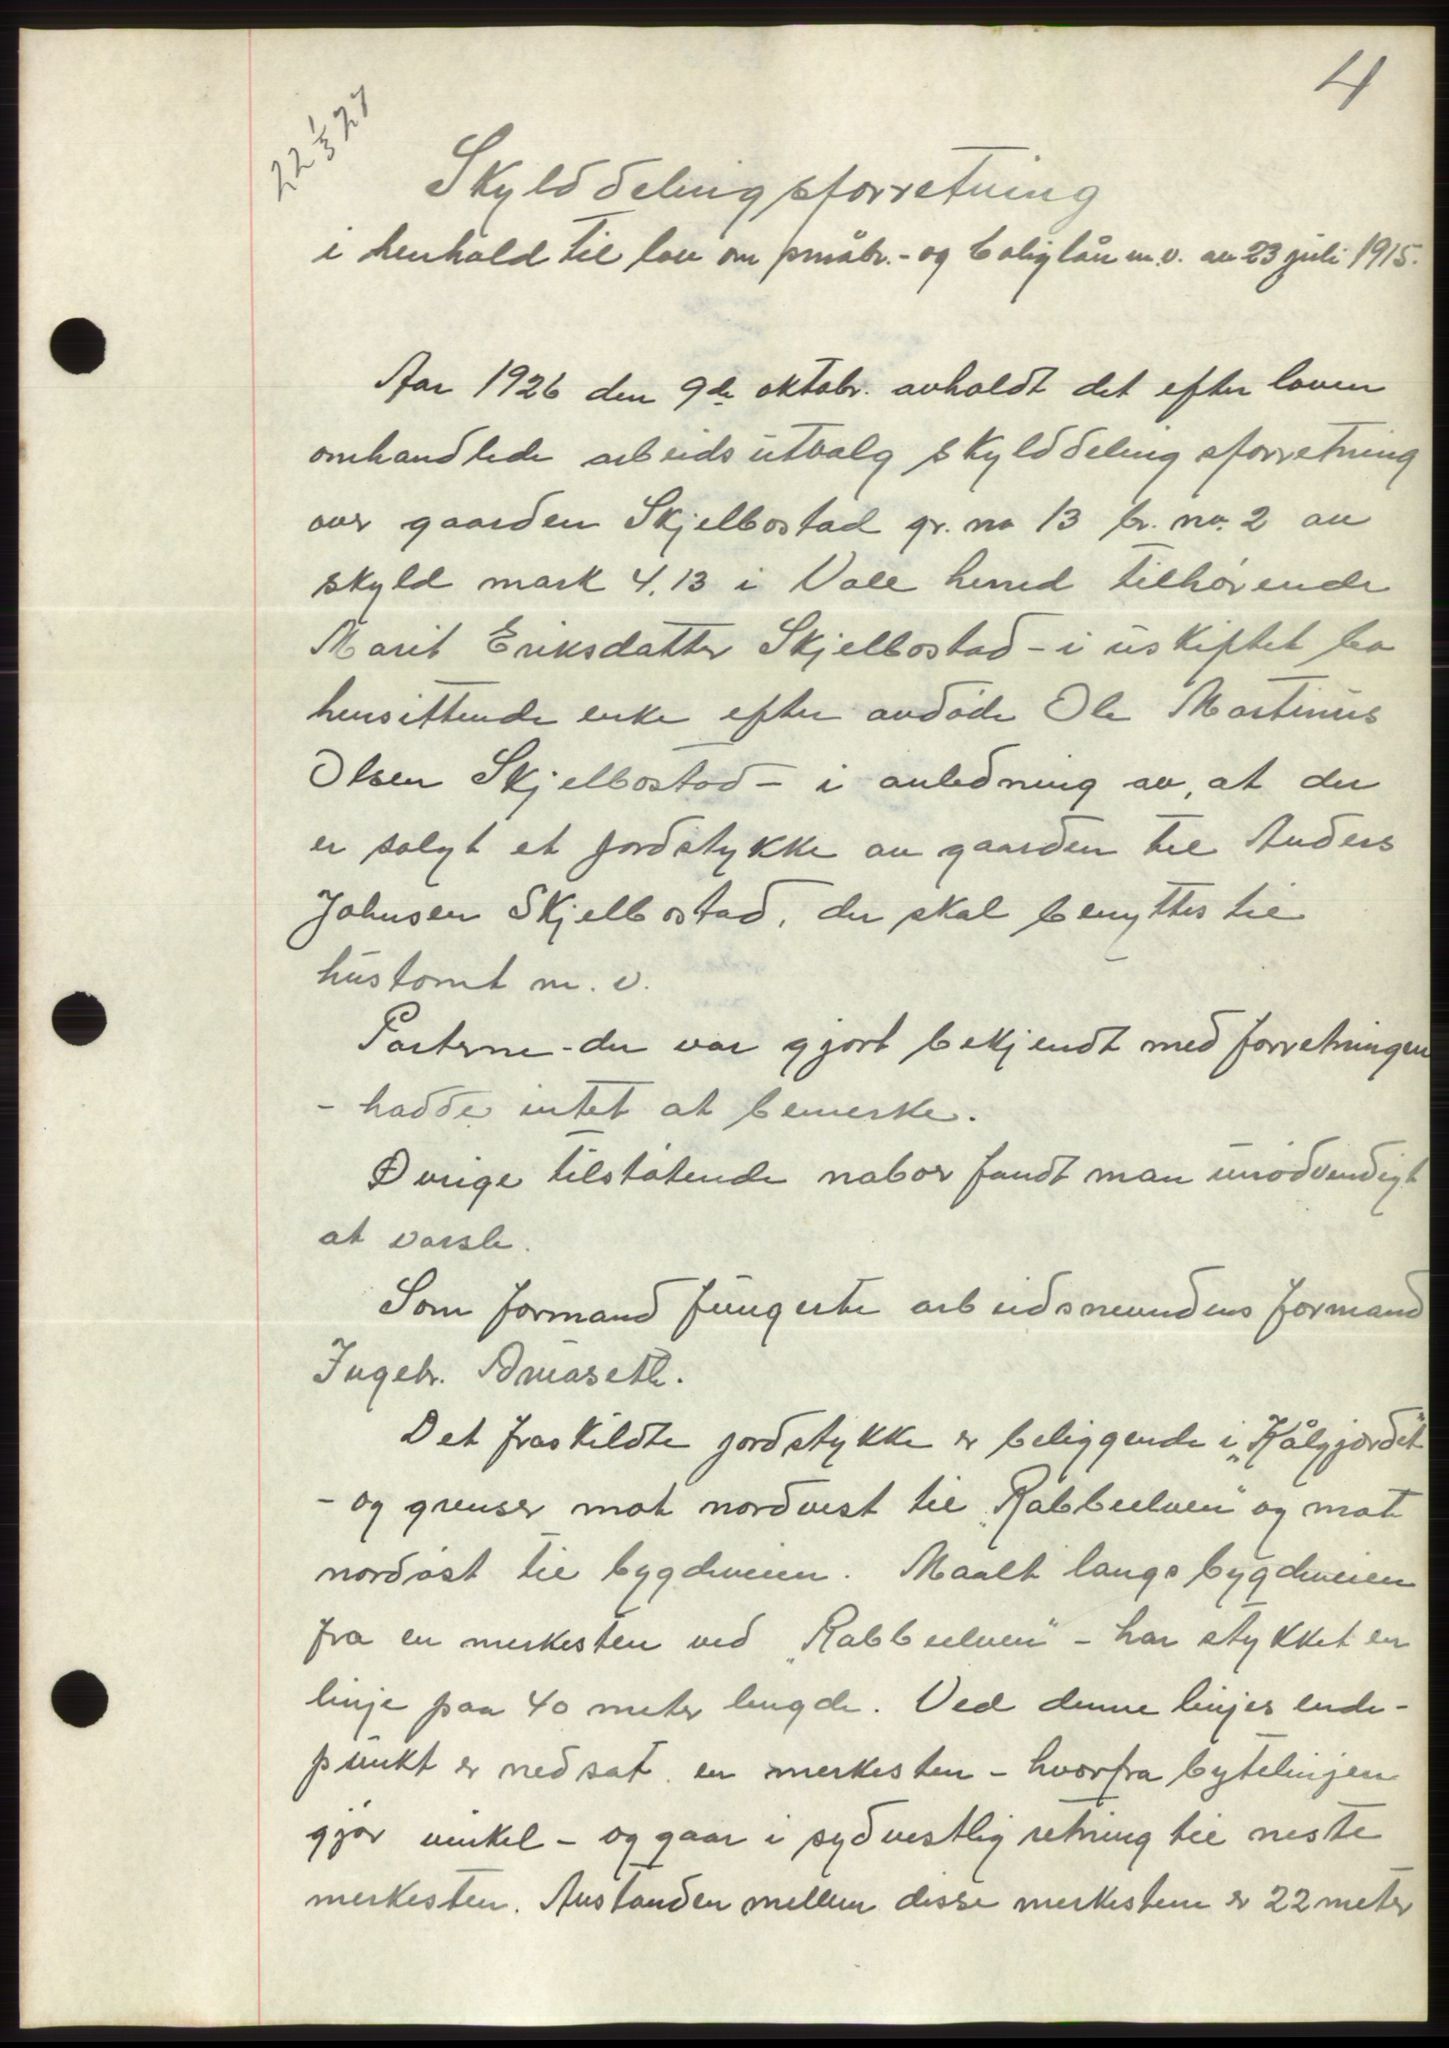 4
22 1/3 27
Skylddelingsforretning
i henhold til lov om småbr.- og boliglån m.v. av 23 juli 1915.
Aar 1926 den 9de oktobr. avholdt det efter loven
omhandlede arbeidsutvalg skylddelingsforretning
over gaarden Skjelbostad gr. no 13 br. no. 2 av
skyld mark 4.13 i Voll herred tilhørende
Marit Eriksdatter Skjelbostad - i uskiftet bo
hensittende enke efter avdöde Ole Martinus
Olsen Skjelbostad - i anledning av, at der
er solgt et jordstykke av gaarden til Anders
Johnsen Skjelbostad, der skal benyttes til
hustomt m. v.
Parterne - der var gjort bekjendt med forretningen
- hadde intet at bemerke.
Øvrige tilstötende naboer fandt man unödvendigt
at varsle.
Som formand fungerte arbeidsnevndens formand
Ingebr.
Det fraskildte jordstykke er beliggende i „Kålgjordet"
- og grenser mot nordvest til „Rabbeelven" og mot
nordöst til bygdeveien. Maalt langs bygdeveien
fra en merkesten ved „Rabbeelven" - har stykket en
linje paa 40 meter lengde. Ved denne linjes ende-
punkt er nedsat en merkesten - hvorfra bytelinjen
gjör vinkel - og gaar i sydvestlig retning til neste
merkesten. Avstanden mellem disse merkestene er 22 meter